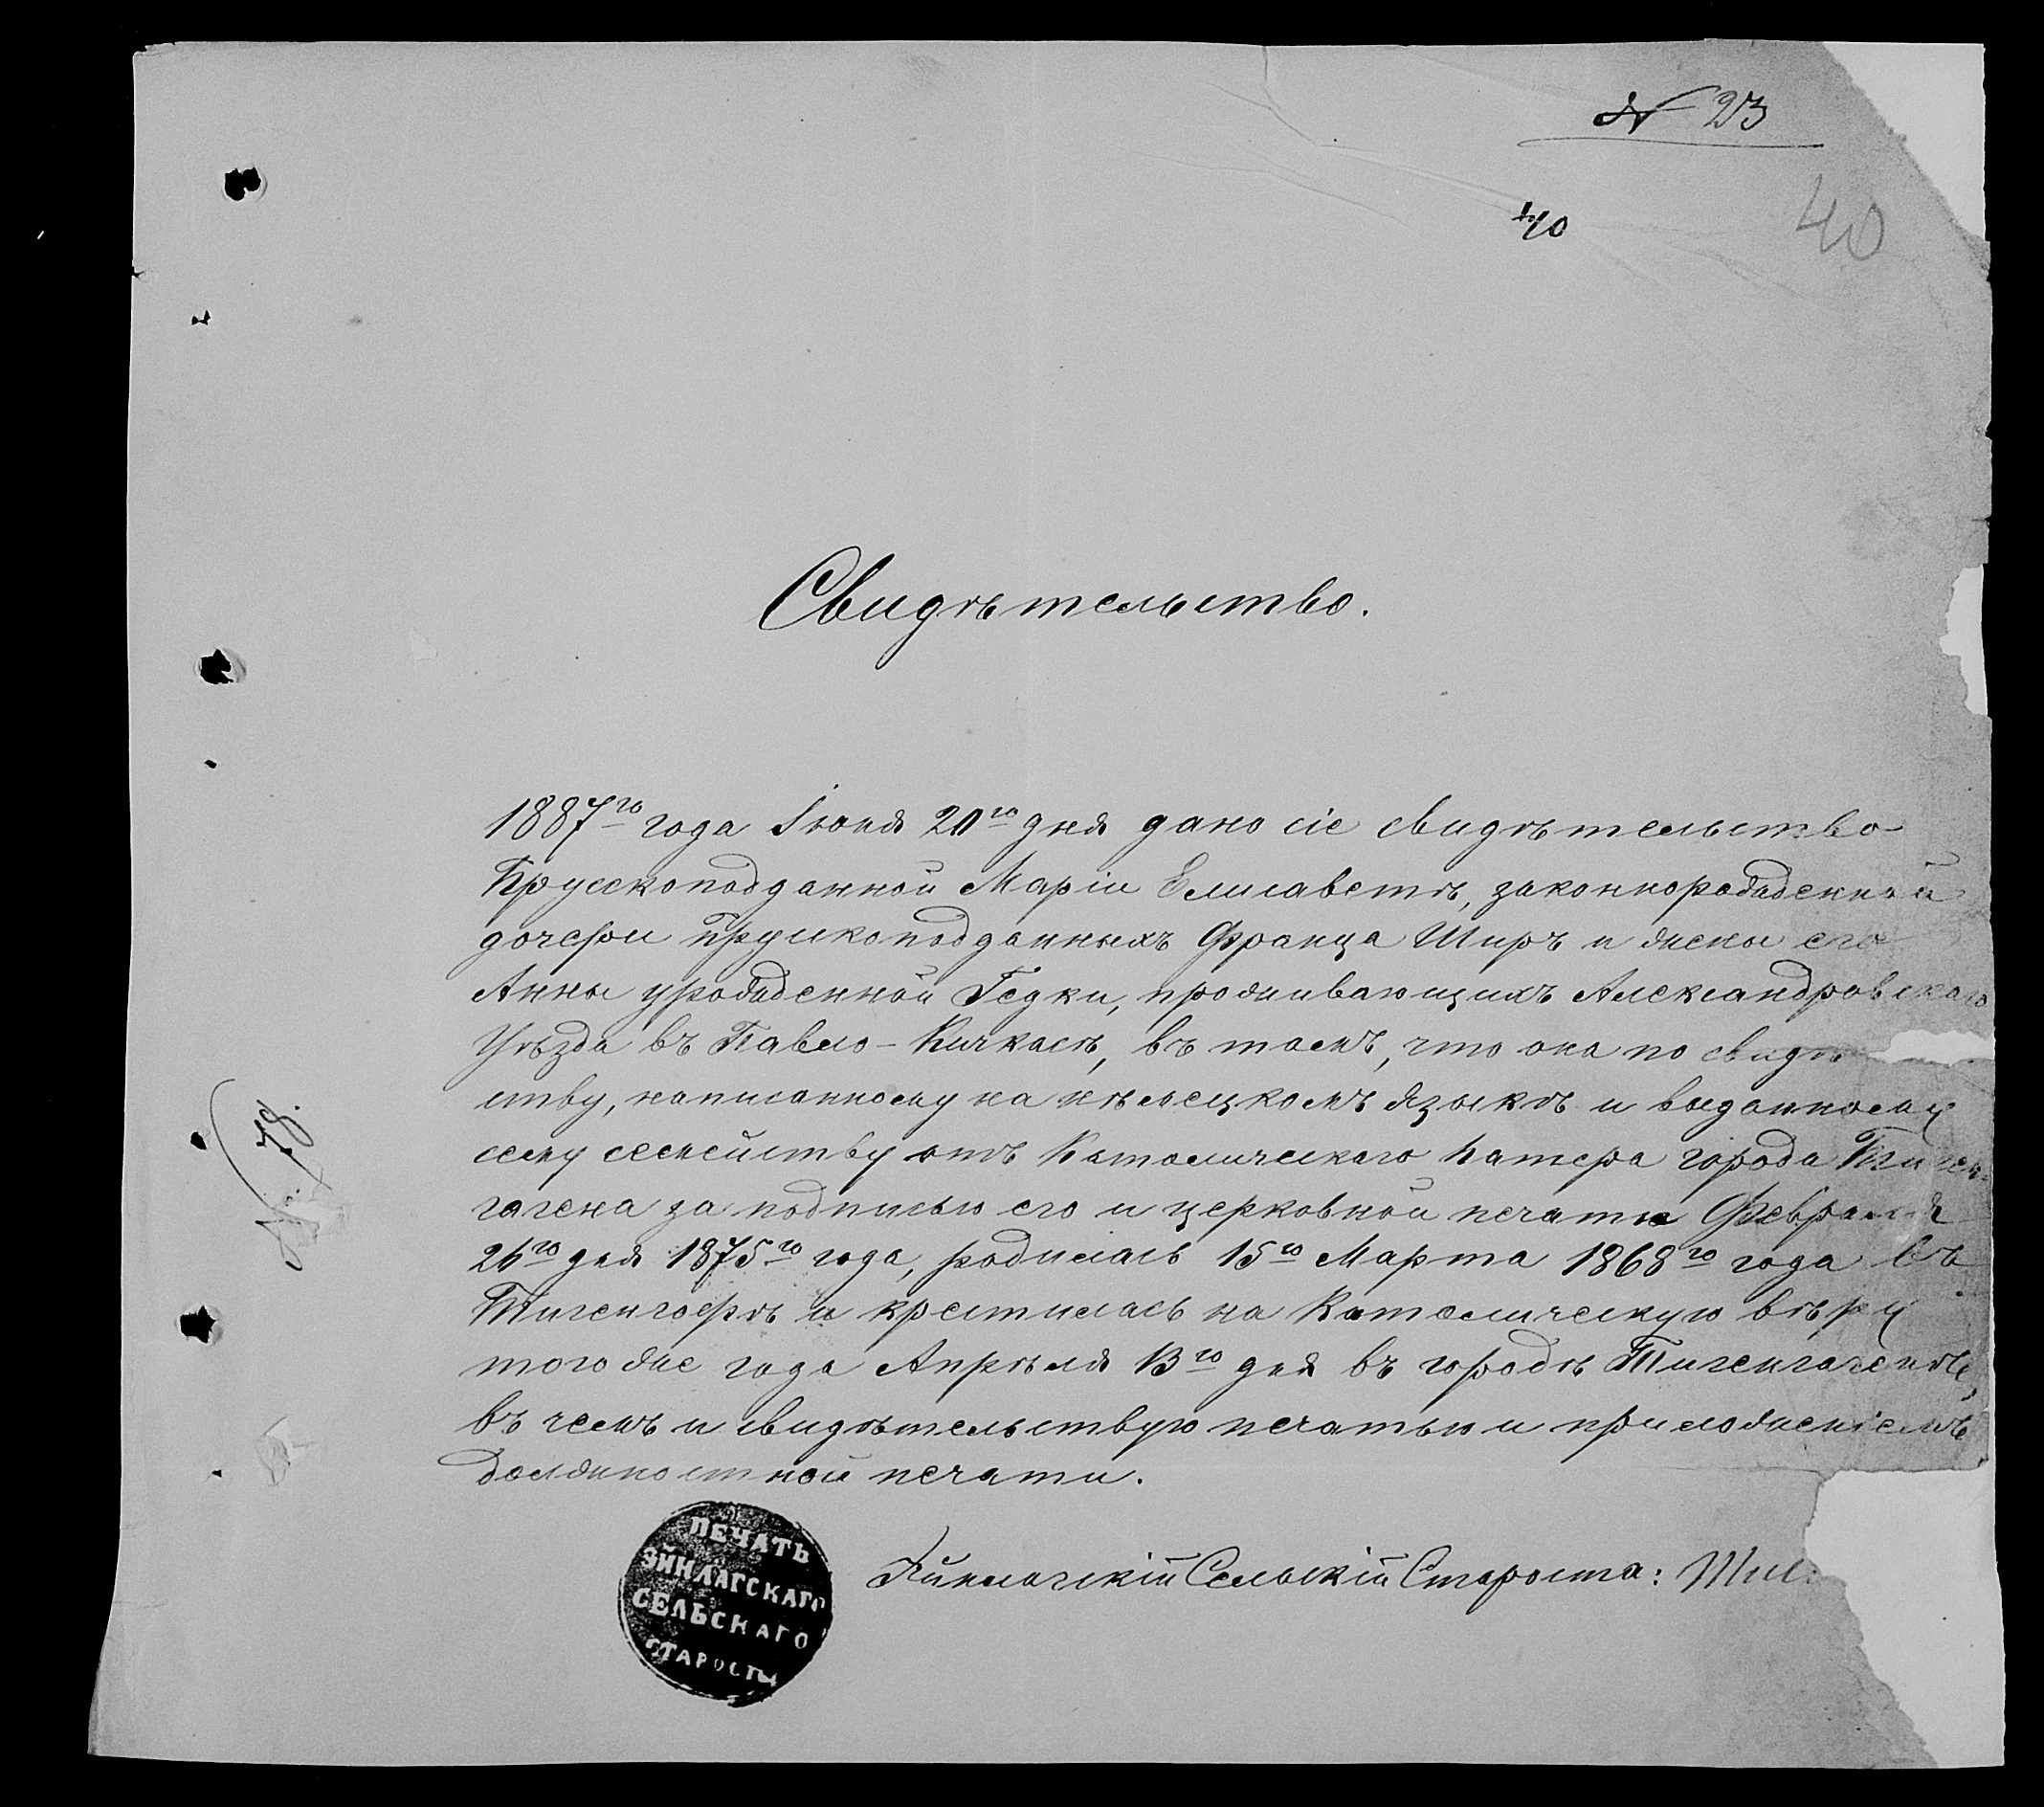 № 23
40
40
Свидѣтельство.
1887го года Іюня 20го дня дано сіе свидѣтельство
Прусскоподданной Маріи Елисаветѣ, законнорожденной
дочери Прускоподданныхъ Франца Ширъ и жены его
Анны урожденной Гедки, проживающихъ Александровскаго
Уѣзда въ Павло-Кичкасѣ, въ томъ, что она по свидѣ
ству, написанному на нѣмецкомъ языкѣ и выданному
сему семейству отъ Католическаго патера города Тиген-
гагена за подписью его и церковной печати Февраля
26го дня 1875го года, родилась 15го Марта 1868го года въ
Тигенгофѣ и крестилась на Католическую вѣру
того же года Апрѣля 13го дня въ городѣ Тигенгагенѣ,
въ чемъ и свидѣтельствую печатью и приложеніемъ
должностной печати.
ПЕЧАТЬ
ЭЙНЛАГСКАГО
СЕЛЬСКАГО
СТАРОСТЫ
Эйнлагскій Сельскій Староста:
№ 78.